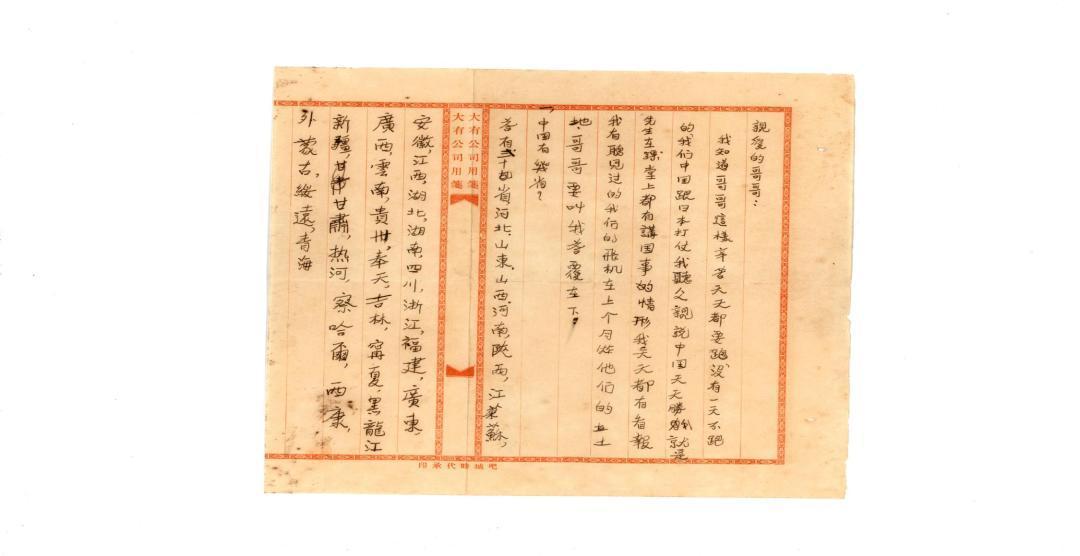 親爱的哥哥：
我知道哥哥這樣辛苦天天都要跑没有一天不跑
的我們中国跟日本打仗我聽父親說中国天天勝利就是
先生在課堂上都有講国事的情形我天天都有看報
我有聽見过的我们的飛机在上个月炸他們的土
地，哥哥要叫我答覆在下，
一
中国有幾省？
答有二十四省河北，山東，山西，河南陝西，江蘇，
大有公司用箋
大有公司用箋
安徽，江西，湖北，湖南，四川，浙江，福建，廣東，
廣西，雲南，貴州，奉天，吉林，甯夏，黑龍江
新疆，甘肅，热河，察哈爾，西康，
外蒙古，綏遠，青海
吧城時代承印